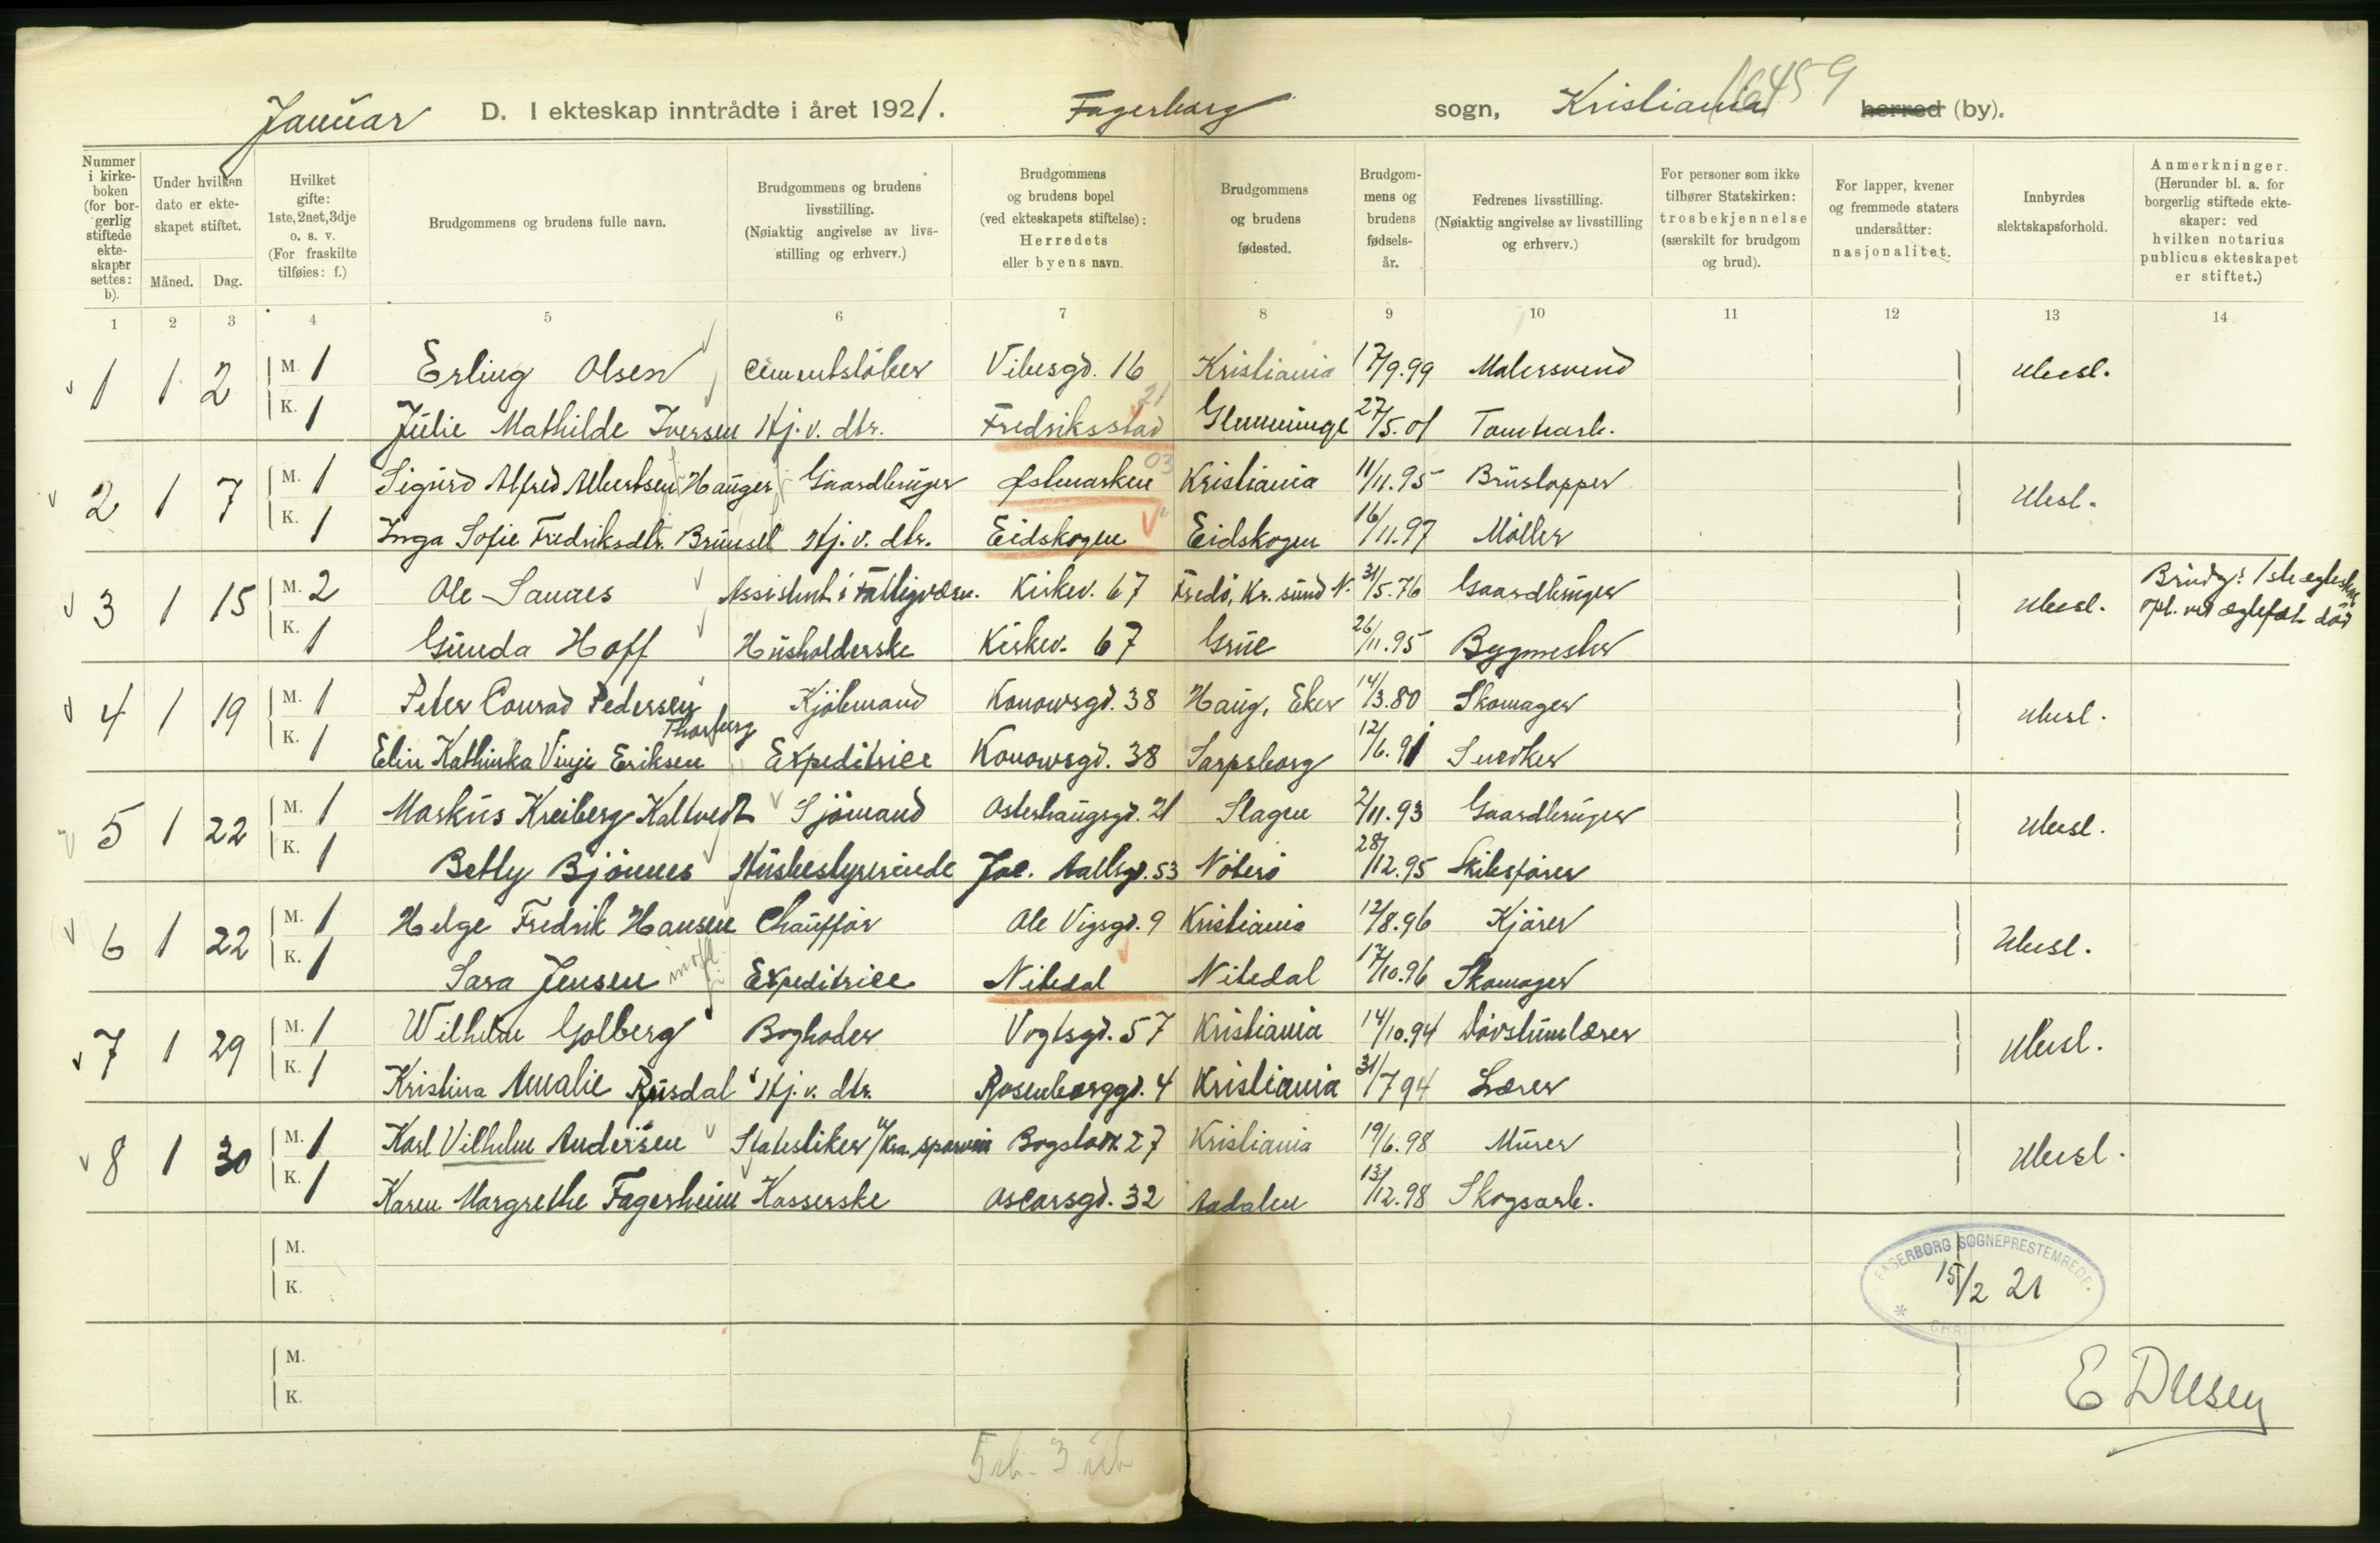 Januar D. I ekteskap inntrådte i året 1921. Fagerborg sogn, Kristiania herred (by).
16459
Nummer i kirkeboken (for borgerlig stiftede ekteskaper settes: b).
Under hvilken dato er ekteskapet stiftet.
Måned. Dag.
Hvilket gifte: 1ste, 2net, 3dje o. s. v. (For fraskilte tilføies: f.)
Brudgommens og brudens fulle navn.
Brudgommens og brudens livsstilling. (Nøiaktig angivelse av livsstilling og erhverv.)
Brudgommens og brudens bopel (ved ekteskapets stiftelse): Herredets eller byens navn.
Brudgommens og brudens fødested.
Brudgommens og brudens fødselsår.
Fedrenes livsstilling. (Nøiaktig angivelse av livsstilling og erhverv.)
For personer som ikke tilhører Statskirken: trosbekjennelse (særskilt for brudgom og brud).
For lapper, kvener og fremmede staters undersåtter: nasjonalitet.
Innbyrdes slektskapsforhold.
Anmerkninger. (Herunder bl. a. for borgerlig stiftede ekteskaper: ved hvilken notarius publicus ekteskapet er stiftet.)
1 2 3 4 5 6 7 8 9 10 11 12 13 14
1 1 2 M. 1 Erling Olsen Cementstöber Vibesgd. 16 Kristiania 17/9.99 Malersvend Ubesl.
21
K. 1 Julie Mathilde Iversen Hj. v. dtr. Fredriksstad Glemminge 27/5.01 Tomtearb.
03
2 1 7 M. 1 Sigurd Alfred Albertsen Hauger Gaardbruger Østmarken Kristiania 11/11.95 Brustopper Ubesl.
K. 1 Inga Sofie Fredriksdtr. Brunsel Hj. v. dtr. Eidskogen Eidskogen 16/11.97 Möller
3 1 15 M. 2 Ole Sannes Assistent i Fattigvæsn. Kirkev. 67 Fredö, Kr. sund N. 31/5.76 Gaardbruger Ubesl. Brudg: 1ste ægtesk. opl. ved ægtefæl. död
K. 1 Gunda Hoff Husholderske Kirkev. 67 Grue 26/11.95 Bygmester
4 1 19 M. 1 Peter Conrad Pedersen Kjöbmand Konowsgd. 38 Haug, Eker 14/3.80 Skomager Ubesl.
Thorberg
K. 1 Elin Kathinka Vinje Eriksen Expeditrice Konowsgd. 38 Sarpsborg 12/6.91 Snedker
5 1 22 M. 1 Markus Kreiberg Kaltvedt Sjömand Osterhaugsgd. 21 Slagen 2/11.93 Gaardbruger Ubesl.
K. 1 Betly Bjönnes Husbestyrerinde Jac. Aallsgd. 53 Nöterö 28/12.95 Skibsförer
6 1 22 M. 1 Helge Fredrik Hansen Chaufför Ole Vigsgd. 9 Kristiania 12/8.96 Kjörer Ubesl.
K. 1 Sara Jensen Expeditrice Nitedal Nitedal 17/10.96 Skomager
7 1 29 M. 1 Wilhelm Golberg Bogholder Vogtsgd. 57 Kristiania 14/10.94 Dövstumlærer Ubesl.
K. 1 Kristina Amalie Rusdal Hj. v. dtr. Rosenborggd. 4 Kristiania 31/7 94 Lærer
8 1 30 M. 1 Karl Vilhelm Andersen Statistiker v/ Kra. sporvein Bogstadv. 27 Kristiania 19/6.98 Murer Ubesl.
K. 1 Karen Margrethe Fagerheim Kasserske Oscarsgd. 32 Aadalen 13/12.98 Skogsarb.
M.
K.
FAGERBORG SOGNEPRESTEMBEDE.
15/2 21
M.
K.